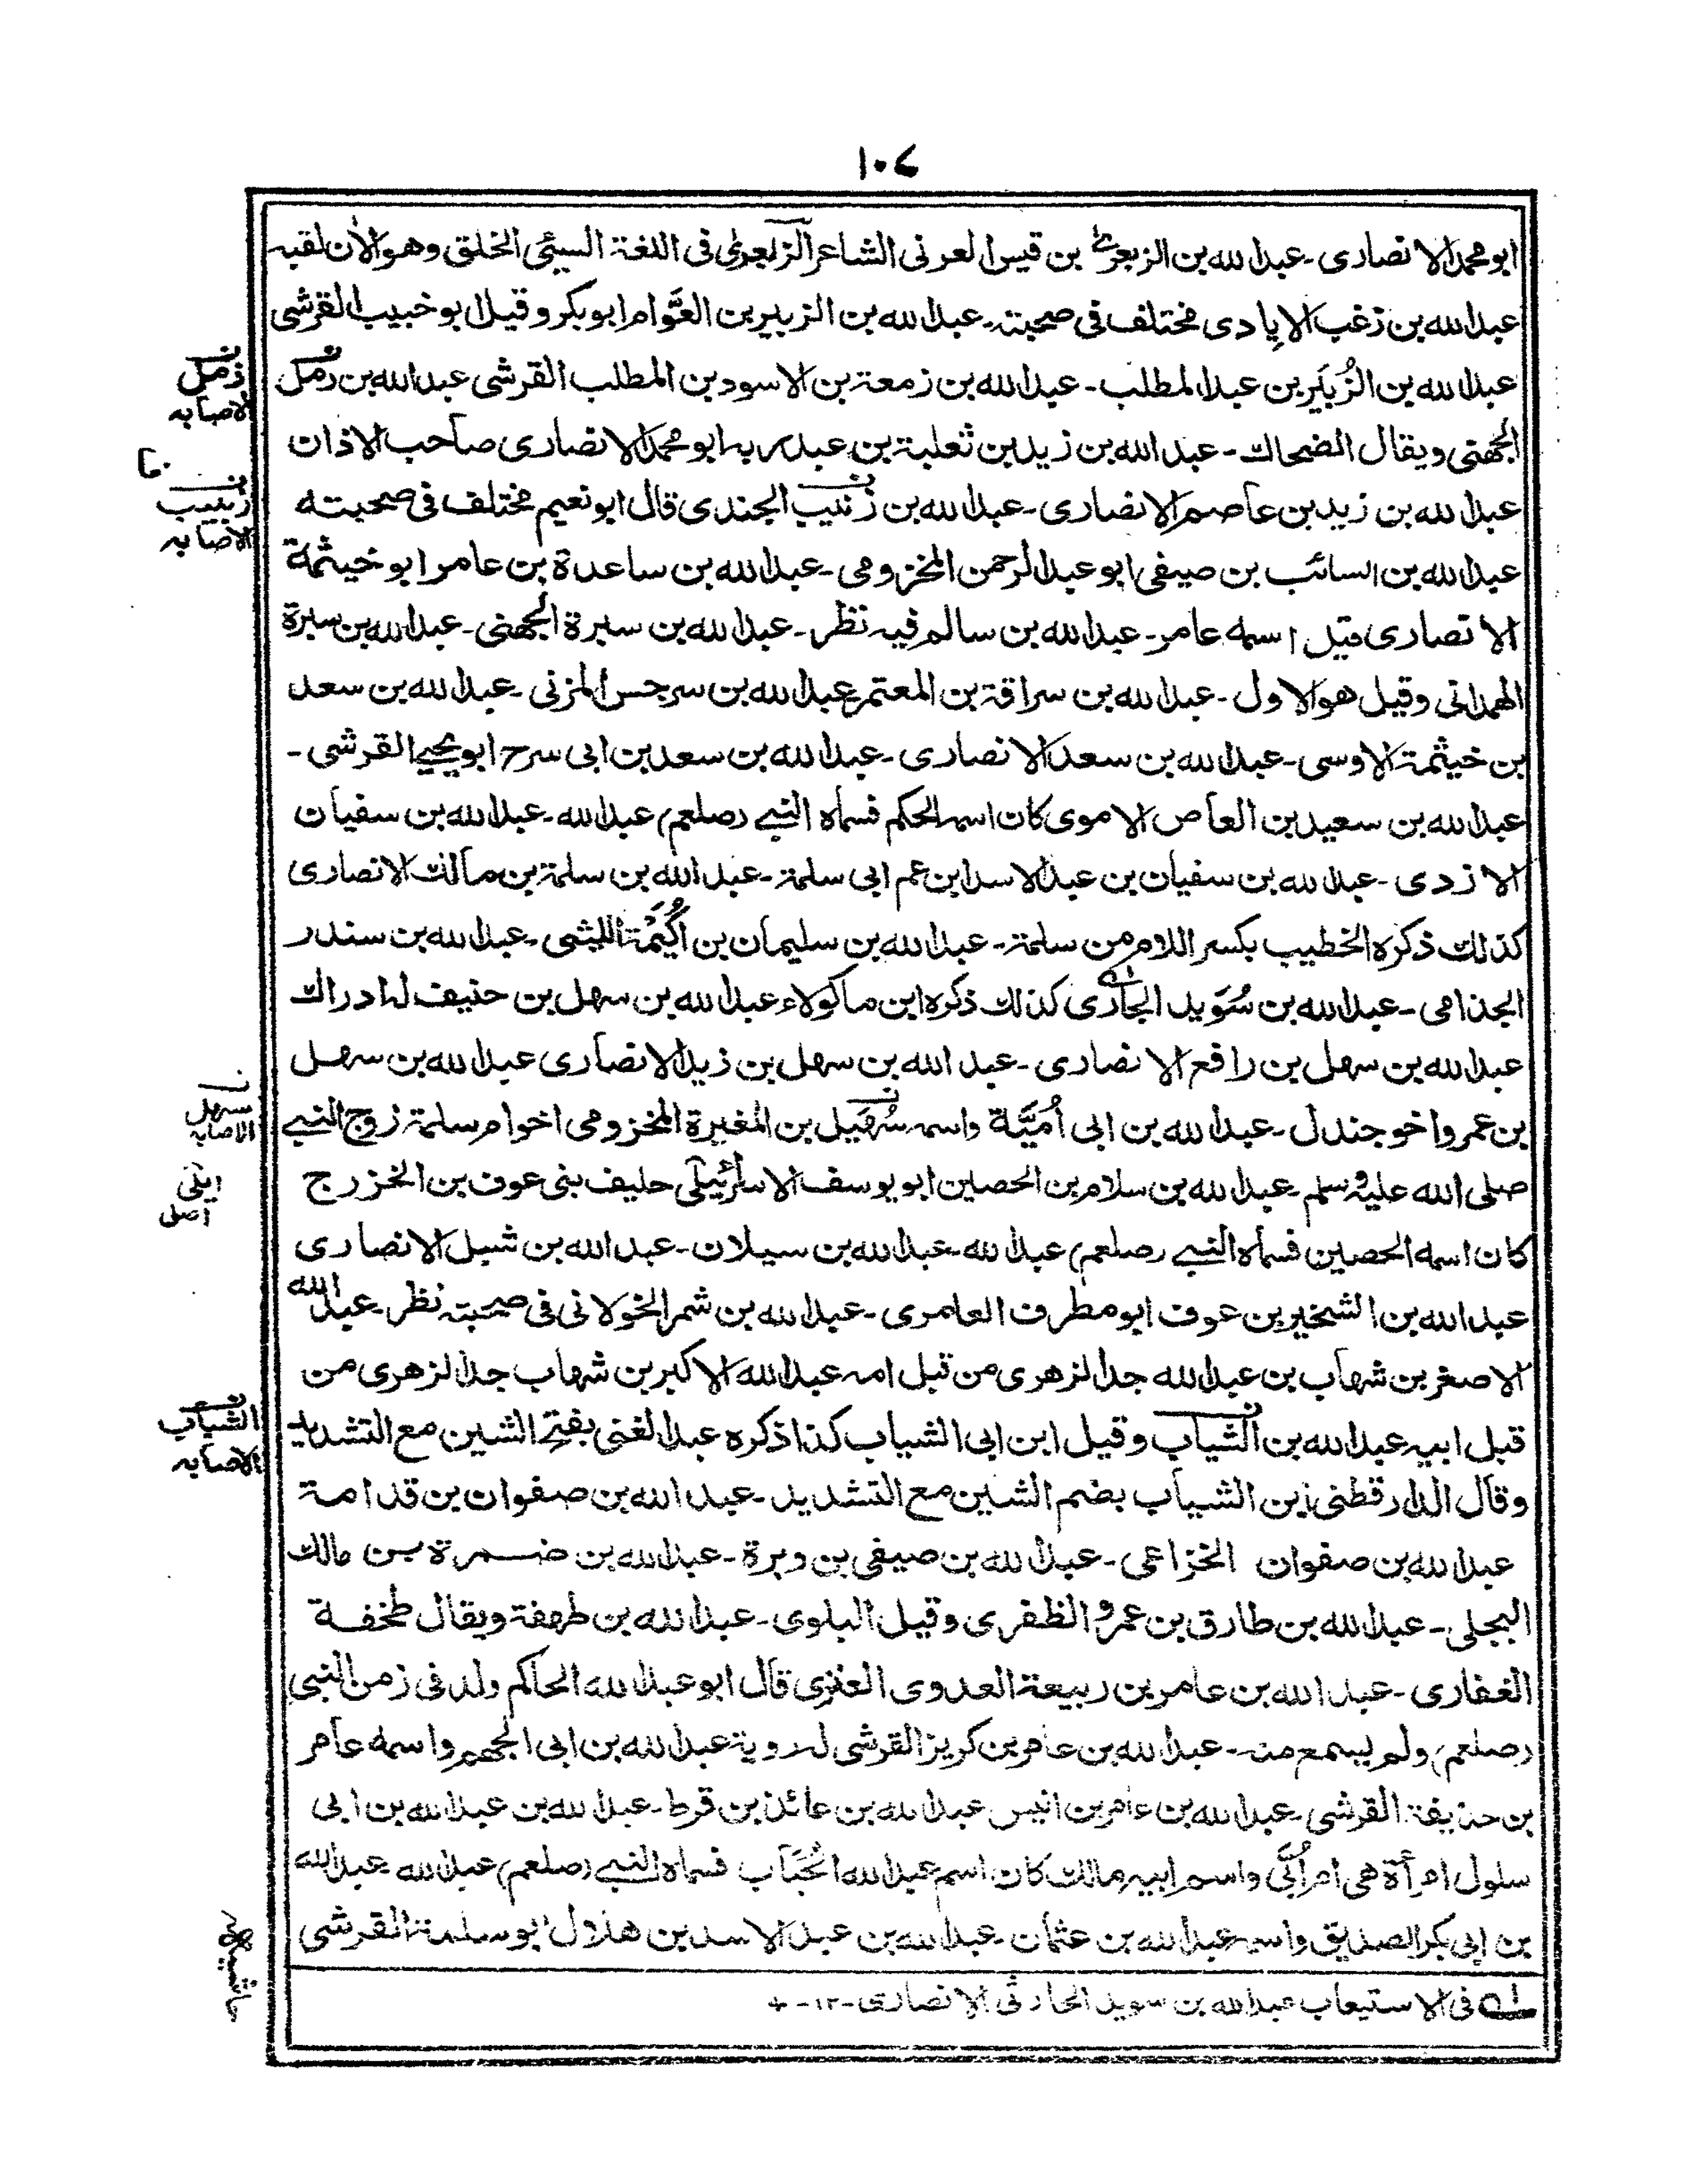 ١٠٤
ابو محمد الانصارى ـ عبد الله بن الزبعرى بن قيس العرنى الشاعر الزبعرى فى اللغة السيئى الخلق وهو الآن لقبه
عبد الله بن زغب الايادى مختلف فى صحبته ـ عبد الله بن الزبير بن العوَّام ابو بكر وقيل ابو خبيب القرشى
عبد الله بن الزُبَير بن عبد المطلب ـ عبد الله بن زمعة بن الاسود بن المطلب القرشى عبد الله بن زمل
الجهنى ويقال الضحاك ـ عبد الله بن زيد بن ثعلبة بن عبد ربه ابو محمد الانصارى صاحب الاذان
عبد الله بن زيد بن عاصم الانصارى ـ عبد الله بن زنيب الجندى قال ابو نعيم مختلف فى صحبته
عبد الله بن السائب بن صيفى ابو عبد الرحمن المخزومى ـ عبد الله بن ساعدة بن عامر ابو خيثمة
الانصارى قيل اسمه عامر ـ عبد الله بن سالم فيه نظر ـ عبد الله بن سبرة الجهنى ـ عبد الله بن سبرة
الهمدانى وقيل هو الاول ـ عبد الله بن سراقة بن المعتمر عبد الله بن سرجس المزنى ـ عبد الله بن سعد
بن خيثمة الاوسى ـ عبد الله بن سعد الانصارى ـ عبد الله بن سعد بن ابى سرح ابو يحيى القرشى ـ
عبد الله بن سعيد بن العاص الاموى كان اسمه الحكم فسماه النبى (صلعم) عبد الله ـ عبد الله بن سفيان
الازدى ـ عبد الله بن سفيان بن عبد الاسد ابن عم ابى سلمة ـ عبد الله بن سلمة بن مالك الانصارى
كذلك ذكره الخطيب بكسر اللام من سلمة ـ عبد الله بن سليمان بن اُكَيْمَة الليثى ـ عبد الله بن سندر
الجذامى ـ عبد الله بن سُوَيد الجارى كذلك ذكره ابن ماكولاء عبد الله بن سهل بن حنيف له ادراك
عبد الله بن سهل بن رافع الانصارى ـ عبد الله بن سهل بن زيد الانصارى عبد الله بن سهل
بن عمرو اخو جندل ـ عبد الله بن ابى اُمَيَّة واسمه سُهَيل بن المغيرة المخزومى اخو ام سلمة زوج النبى
صلى الله عليه وسلم ـ عبد الله بن سلام بن الحصين ابو يوسف الاسرائيلى حليف بنى عوف بن الخزرج
كان اسمه الحصين فسماه النبى (صلعم) عبد الله ـ عبد الله بن سيلان ـ عبد الله بن شبل الانصارى
عبد الله بن الشخير بن عوف ابو مطرف العامرى ـ عبد الله بن شمر الخولانى فى صحبته نظر ـ عبد الله
الاصغر بن شهاب بن عبد الله جد الزهرى من قبل امه عبد الله الاكبر بن شهاب جد الزهرى من
قبل ابيه عبد الله بن الشياب وقيل ابن ابى الشياب كذا ذكره عبد الغنى بفتح الشين مع التشديد
وقال الدارقطنى ابن الشباب بضم الشين مع التشديد ـ عبد الله بن صفوان بن قدامة
عبد الله بن صفوان الخزاعى ـ عبد الله بن صيفى بن وبرة ـ عبد الله بن ضمرة بن مالك
البجلى ـ عبد الله بن طارق بن عمرو الظفرى وقيل البلوى ـ عبد الله بن طهفة ويقال طخفة
الغفارى ـ عبد الله بن عامر بن ربيعة العدوى العنزى قال ابو عبد الله الحاكم ولد فى زمن النبى
(صلعم) ولم يسمع منه ـ عبد الله بن عامر بن كريز القرشى له روية عبد الله بن ابى الجهم واسمه عامر
بن حذيفة القرشى ـ عبد الله بن عامر بن انيس عبد الله بن عائذ بن قرط ـ عبد الله بن عبد الله بن ابى
سلول امرأة هى ام اُبَىّ واسم ابيه مالك كان اسم عبد الله الحُبَاب فسماه النبى (صلعم) عبد الله عبد الله
بن ابى بكر الصديق واسمه عبد الله بن عثمان ـ عبد الله بن عبد الاسد بن هلال ابو سلمة القرشى
له فى الاستيعاب عبد الله بن سويد الحارثى الانصارى ـ ١٢ ـ
ن
زمل
الاصابه
ن
زبيب
الاصابه
ن
سهل
الاصابه
اصل
ن
الشياب
الاصابه